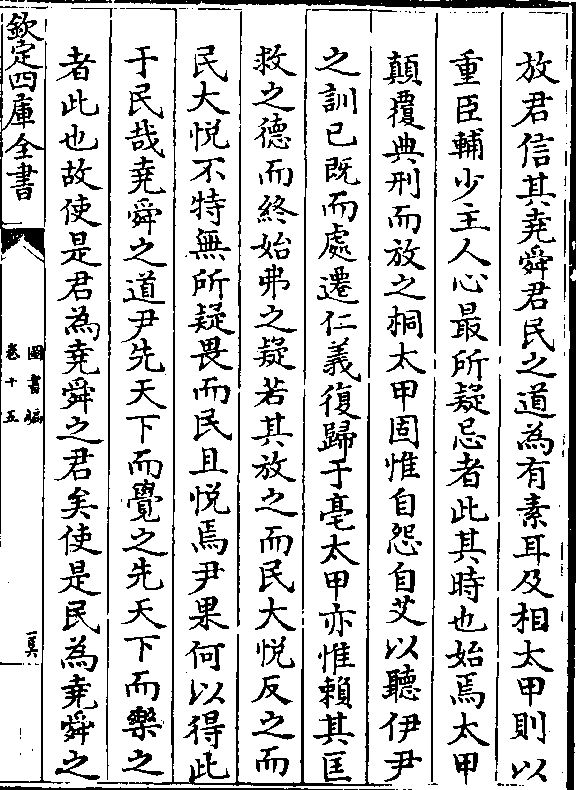 放君信其堯舜君民之道為有素耳及相太甲則以
重臣輔少主人心最所疑忌者此其時也始焉太甲
顛覆典刑而放之桐太甲固惟自怨自艾以聽伊尹
之訓已既而處遷仁義復歸于亳太甲亦惟賴其匡
救之德而終始弗之疑若其放之而民大悦反之而
民大悦不特無所疑畏而民且悦焉尹果何以得此
于民哉堯舜之道尹先天下而覺之先天下而樂之
者此也故使是君為堯舜之君矣使是民為堯舜之
欽定四庫全書
圖書編
卷十五